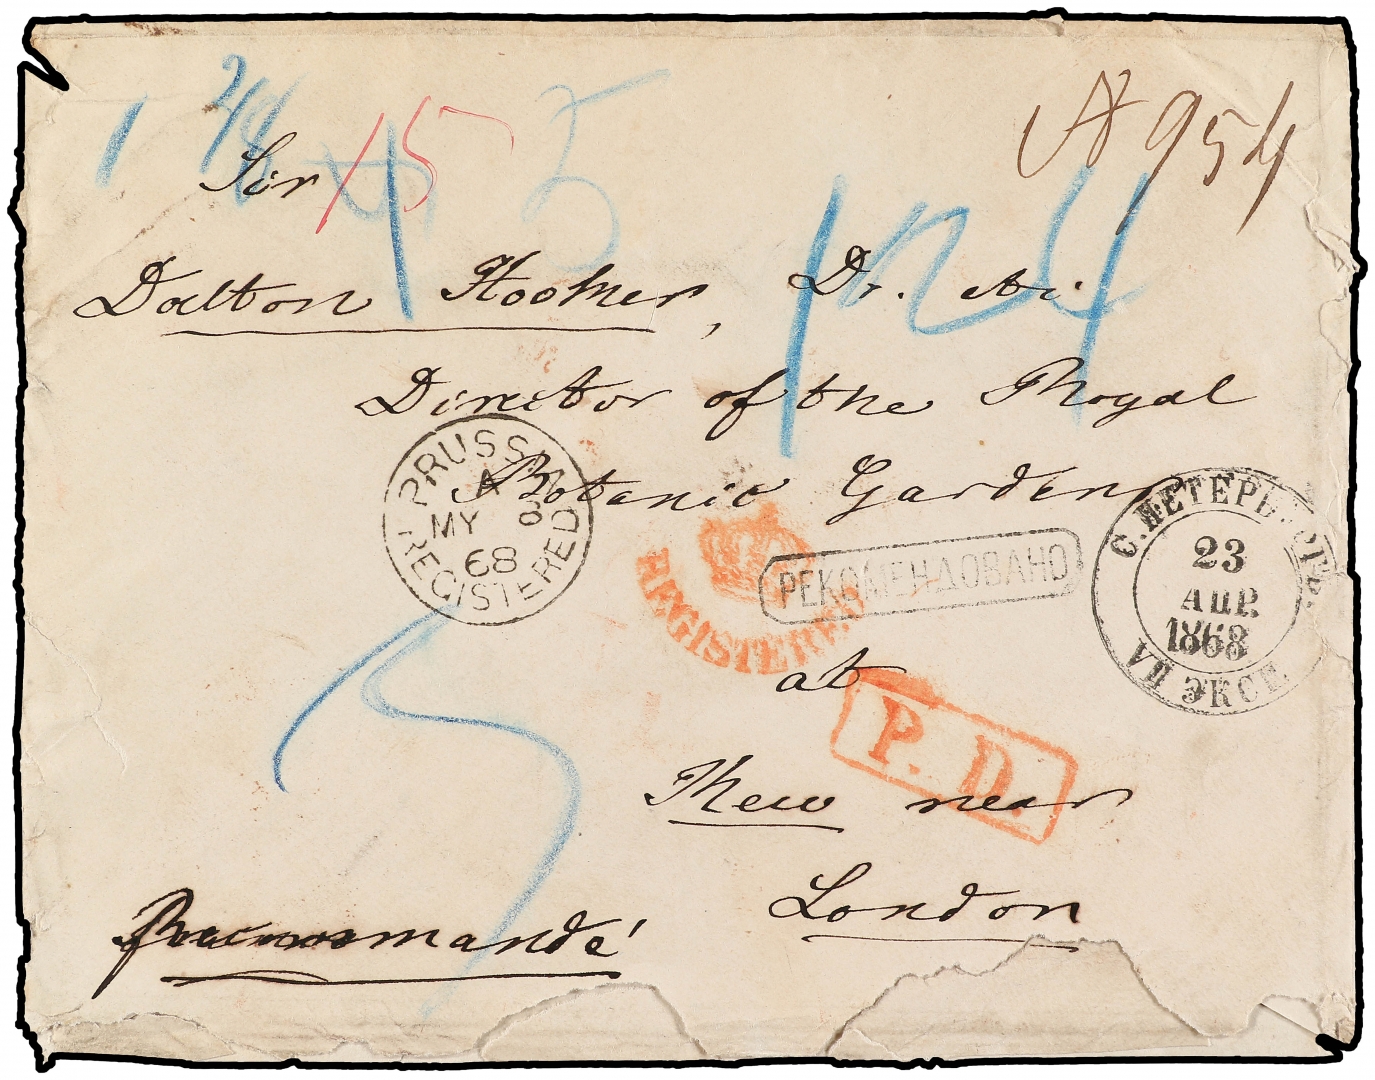 2/8
15
5
A 954
Sir
Dalton Hooker, Dr. &c.
Director of the Royal
Botanic Gardens
PRUSSIA
A
MY 8
68
REGISTERED
REGISTERED
РЕКОМЕНДОВАНО
С. ПЕТЕРБУРГЪ.
23
АПР.
1868
VII ЭКСП.
at
P. D.
Kew near
London
Recommandé